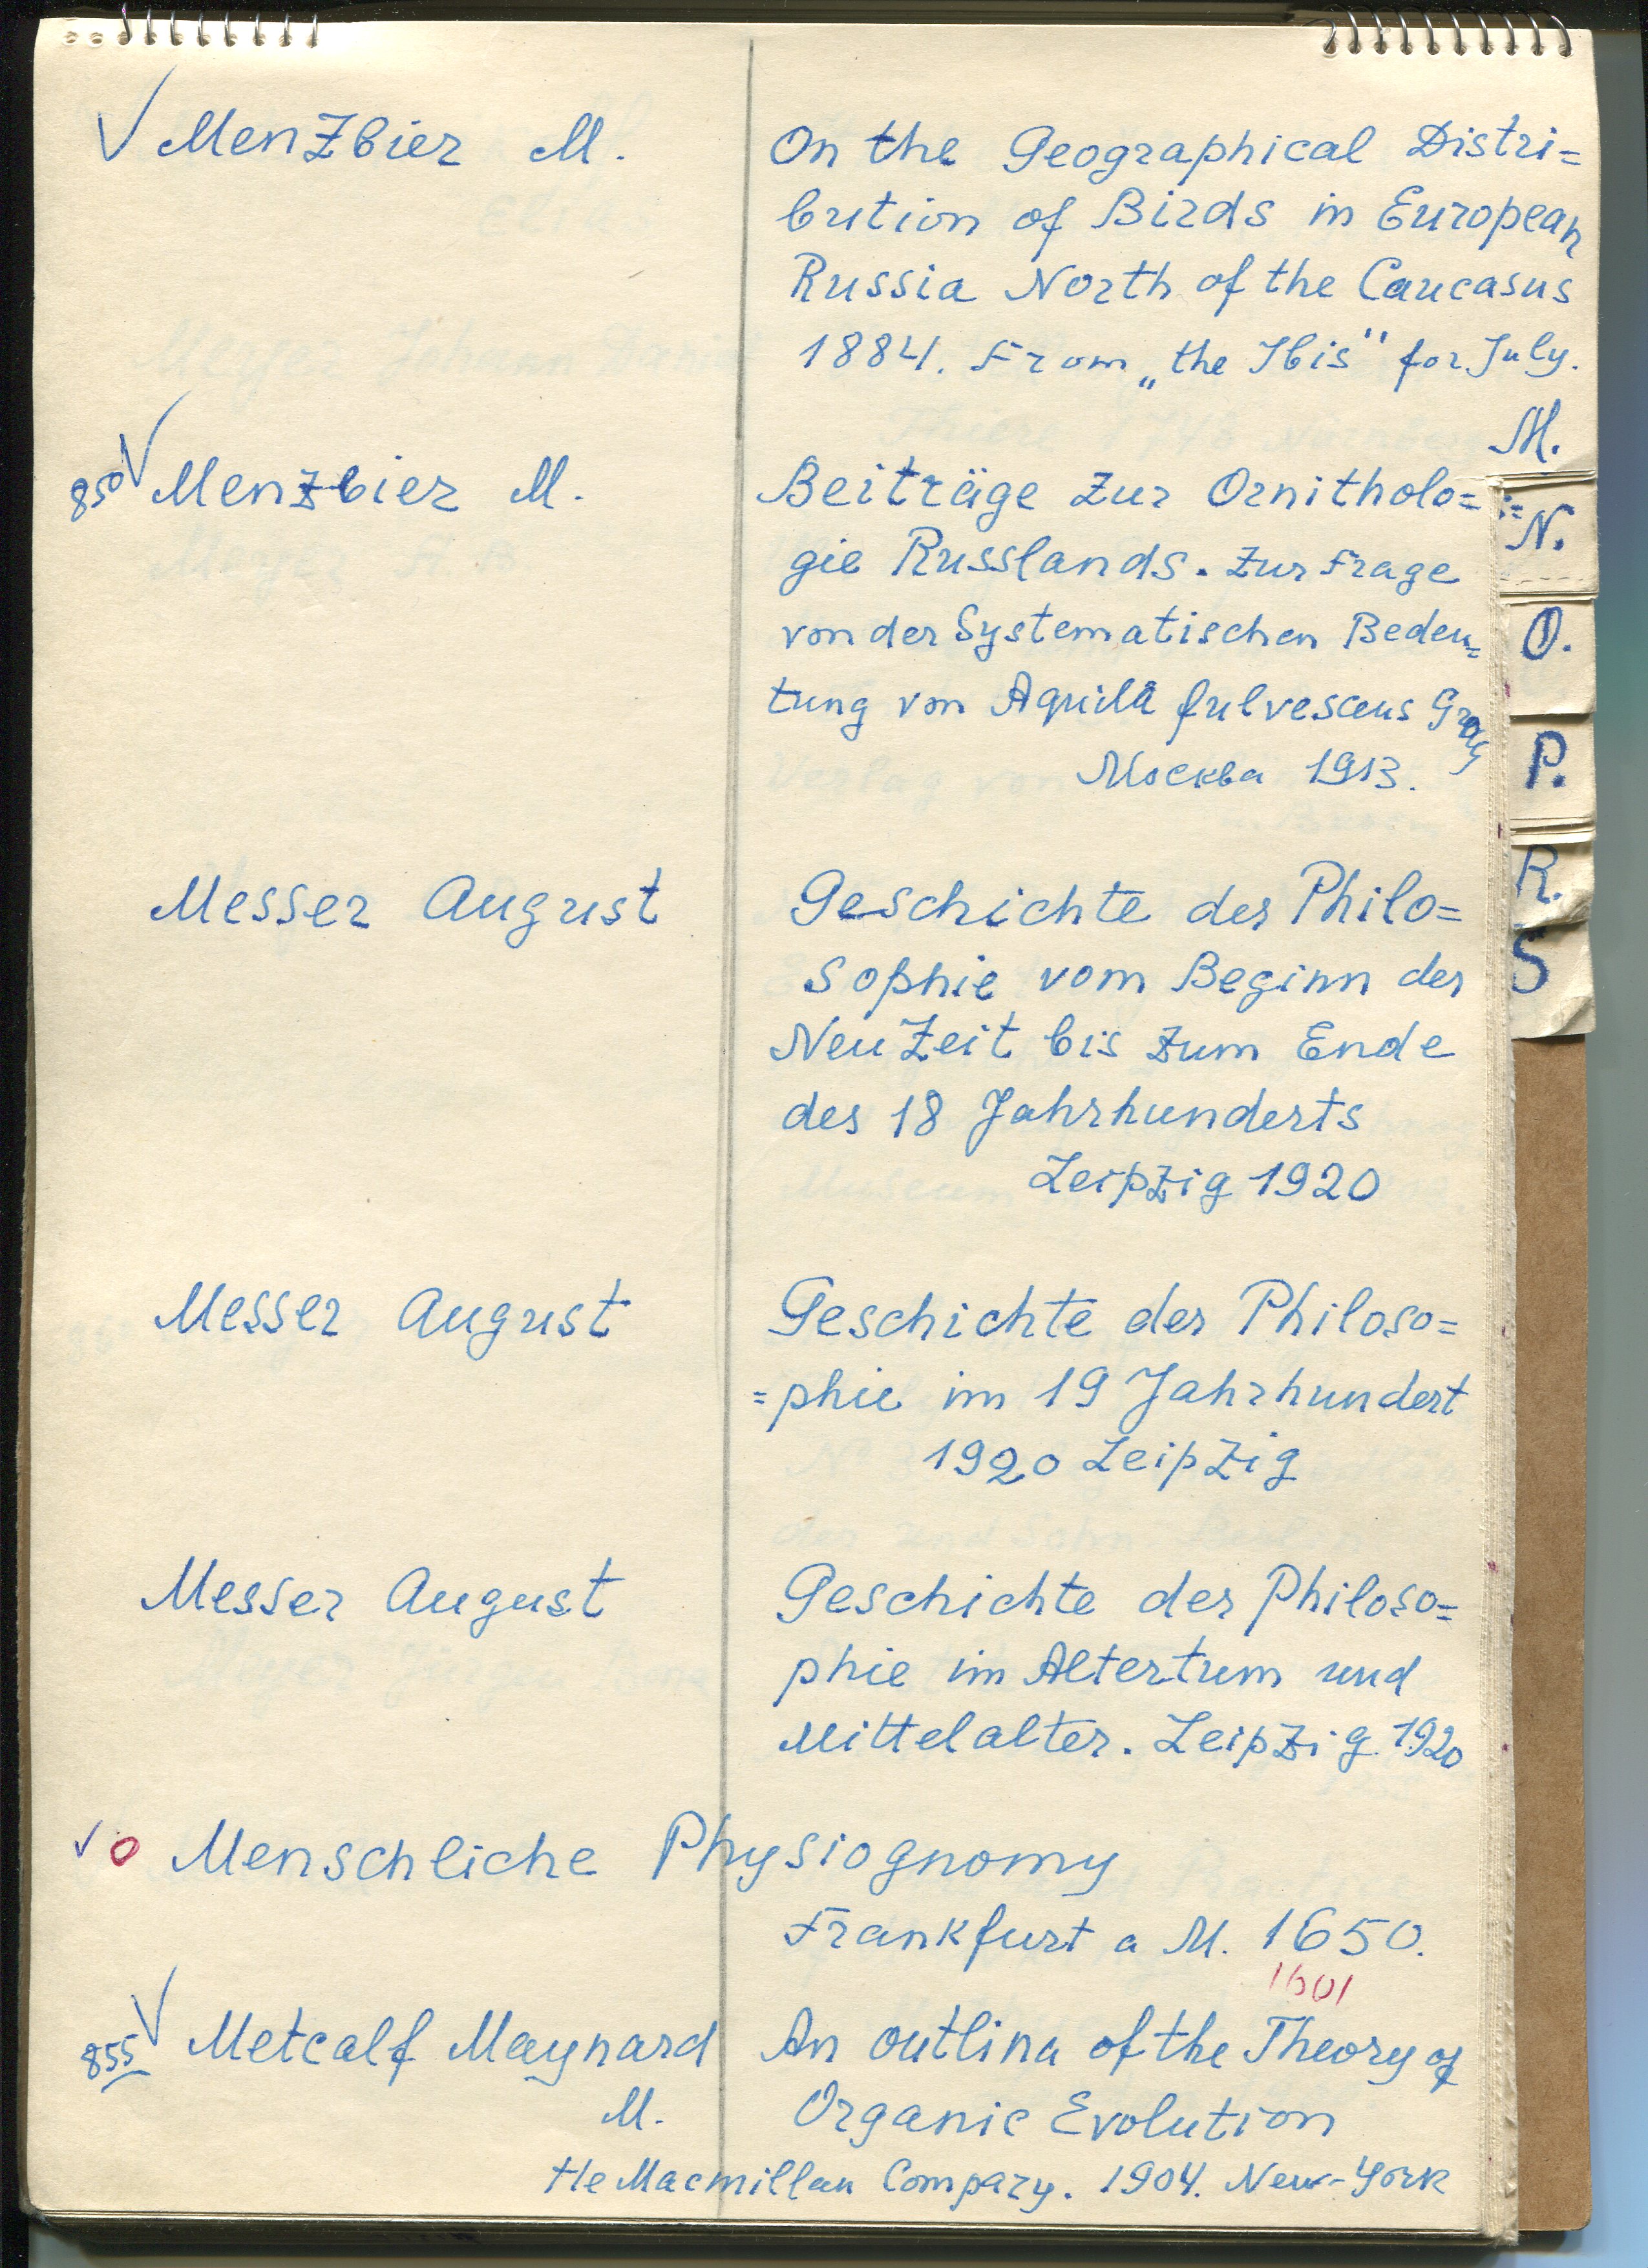 √ Menzbier M.
On the Geographical Distri=
bution of Birds in European
Russia North of the Caucasus
1884. From „the Ibis" for July.
850 √ Menzbier M.
Beiträge zur Ornitholo=
gie Russlands. Zur Frage
von der Systematischen Bedeu=
tung von Aquila fulvescens Gray
Москва 1913.
Messer August
Geschichte der Philo=
sophie vom Beginn der
NeuZeit bis zum Ende
des 18 Jahrhunderts
Leipzig 1920
Messer August
Geschichte der Philoso=
=phie im 19 Jahrhundert
1920 Leipzig
Messer August
Geschichte der Philoso=
phie im Altertum und
Mittelalter. Leipzig. 1920
√ o Menschliche Physiognomy
Frankfurt a M. 1650.
1601
855 √ Metcalf Maynard
M.
An outlina of the Theory of
Organic Evolution
He Macmillan Compazy. 1904. New-York
M.
N.
O.
P.
R.
S